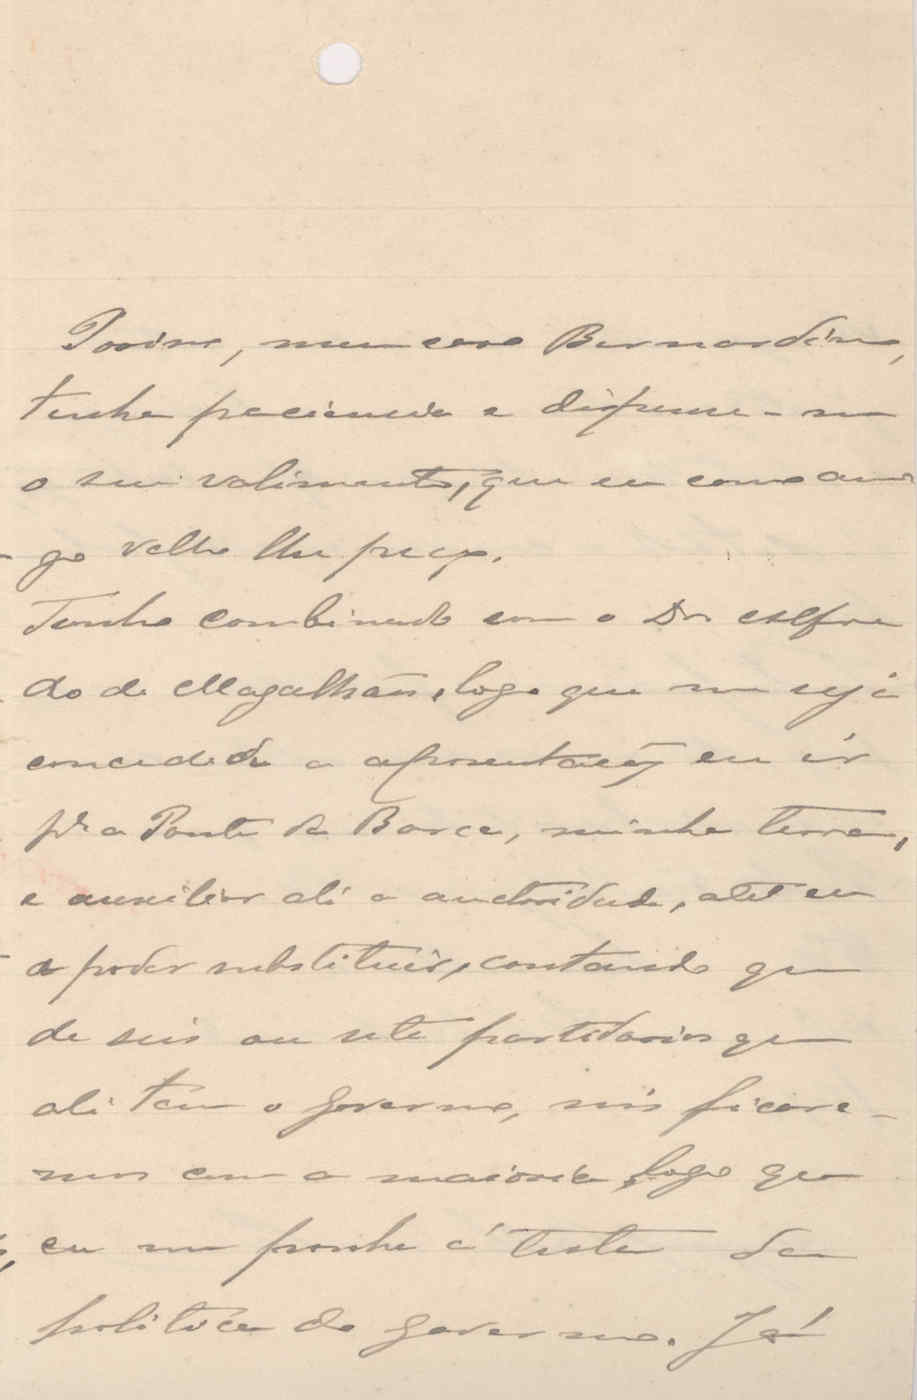 Porisso, meu caro Bernardino,
tenha paciencia e dispense-me
o seu valimento, que eu como ami-
go velho lhe peço.
Tenho combinado com o Dr Alfre
do de Magalhães, logo que me seja
concedida a aposentação eu ir
pra Ponte da Barca, minha terra,
e auxiliar ali a auctoridade, até eu
a poder substituir, contando que
de seis ou sete partidarios que
ali tem o governo, nós ficare-
mos com a maioria, logo que
eu me ponha á testa da
politica do governo. Já